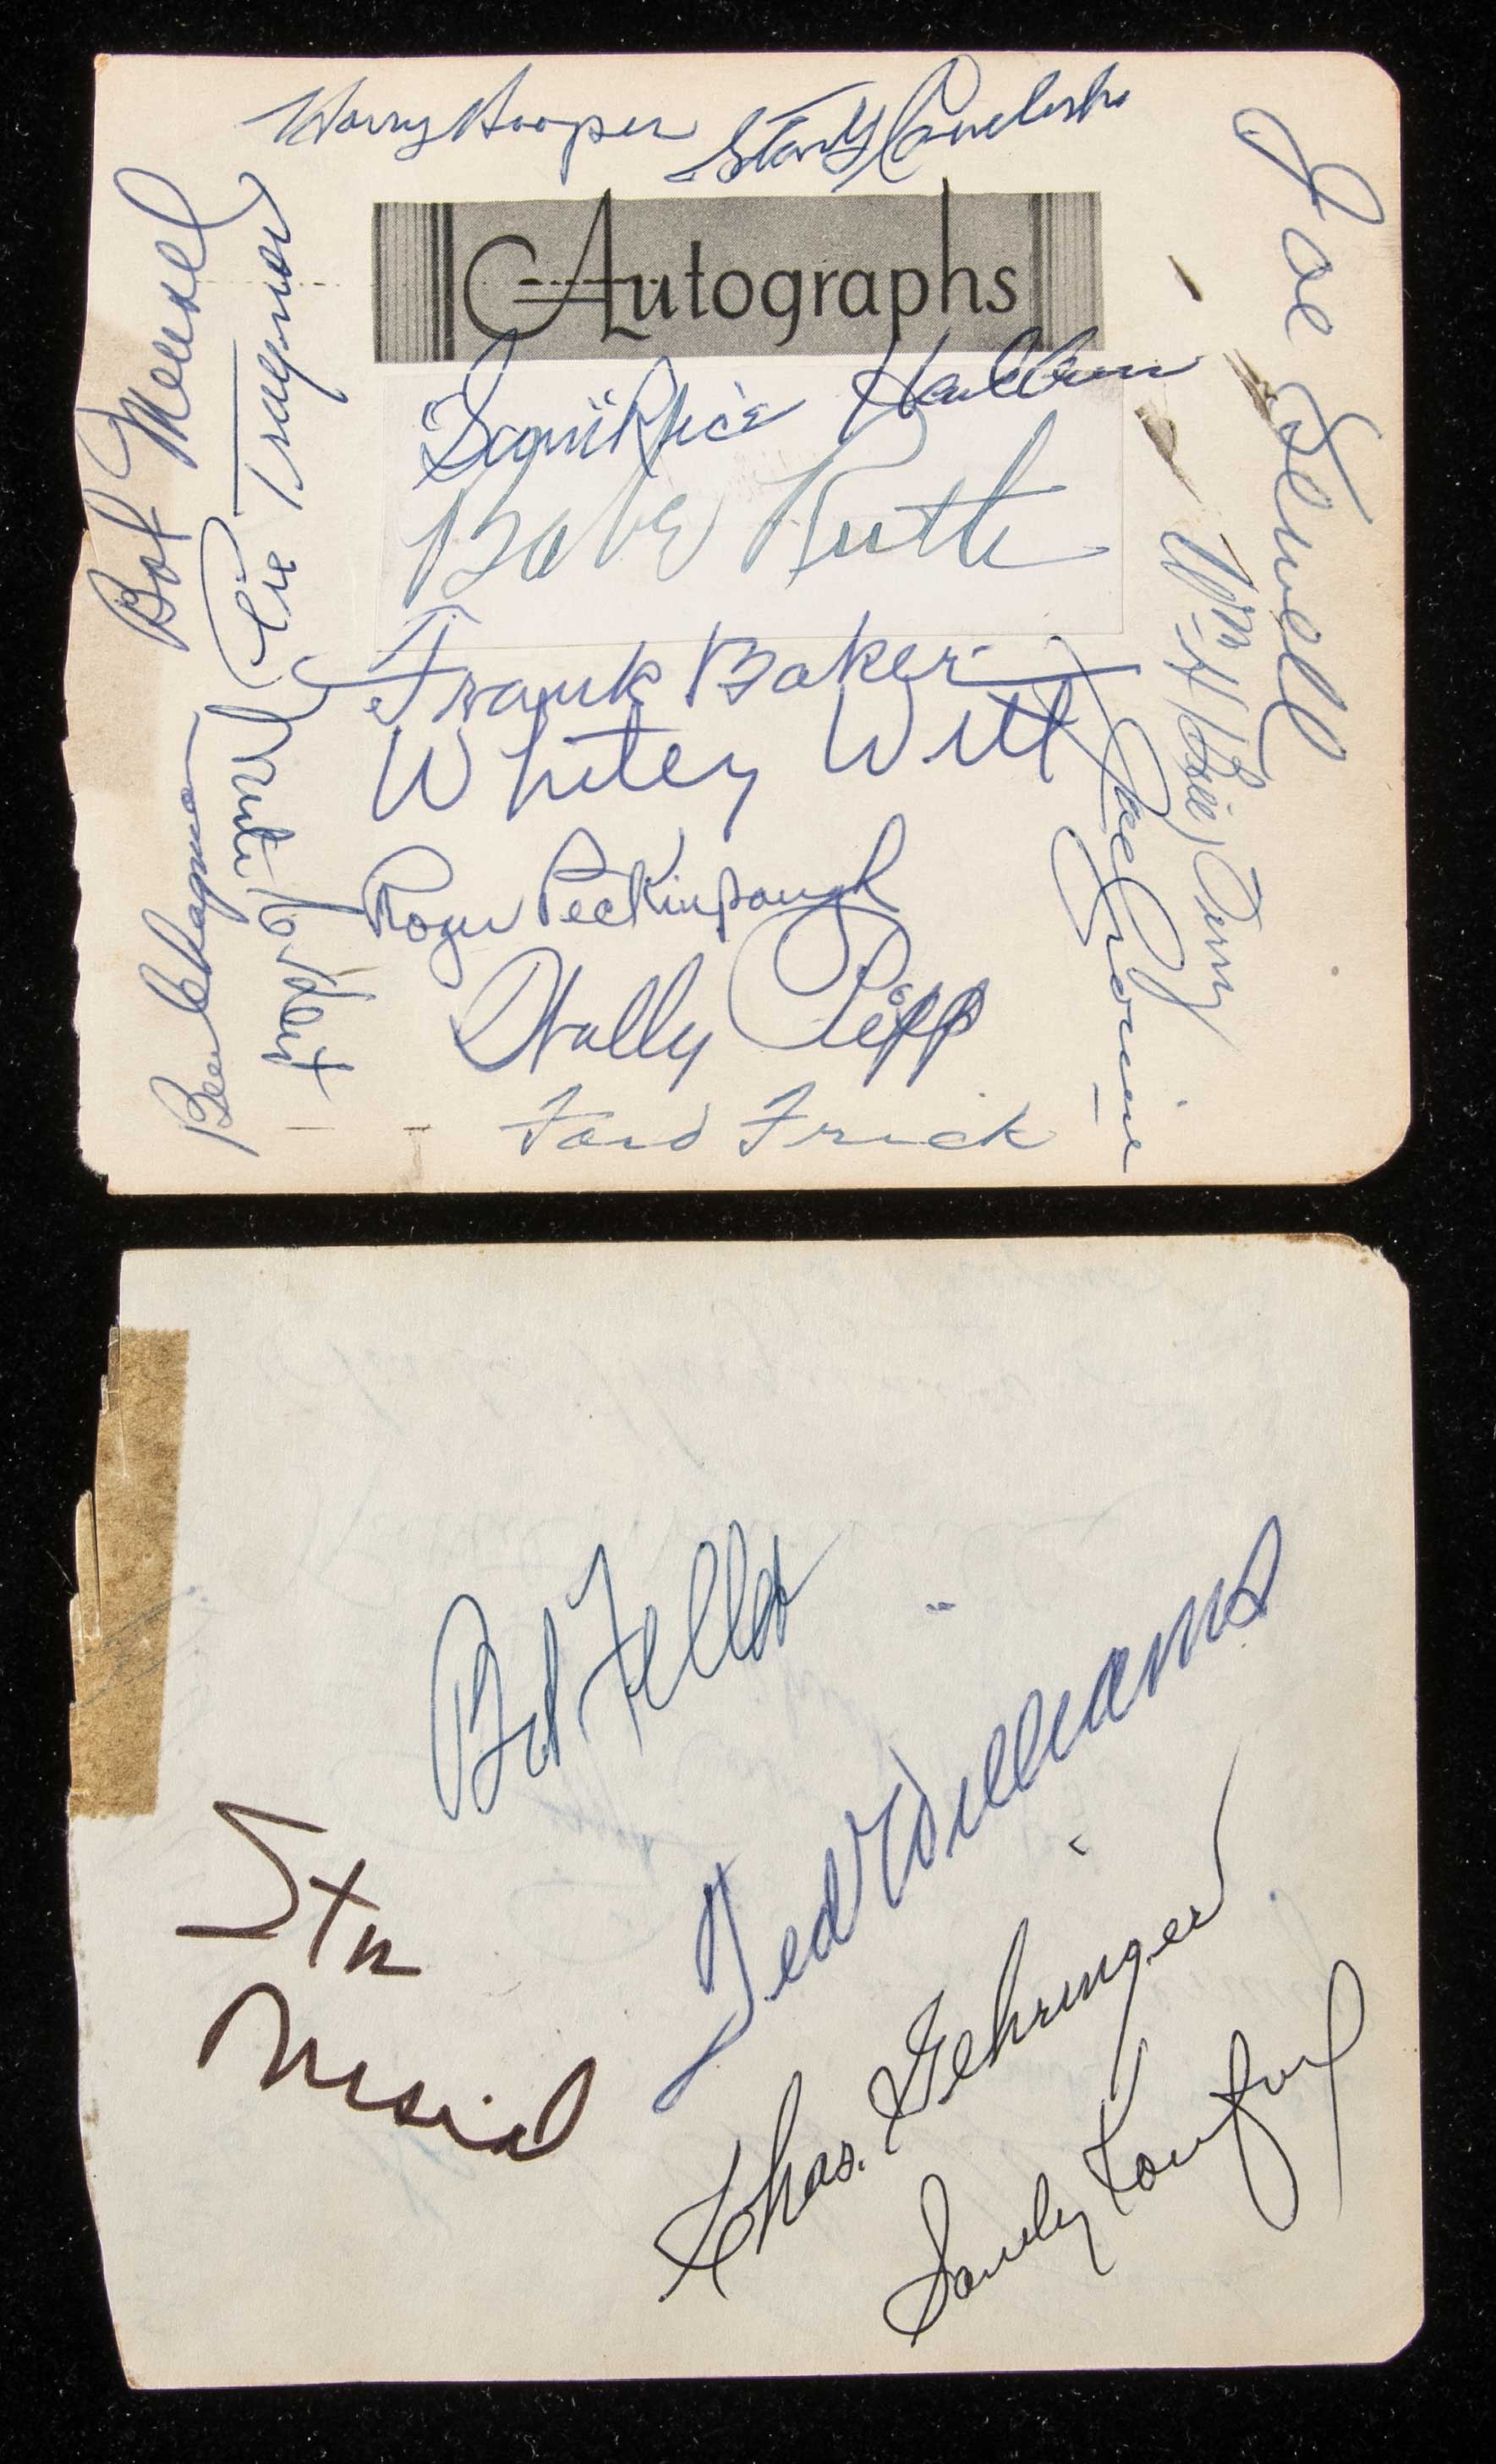 Harry Hooper
Stanley Coveleski
Autographs
"Jesse" Haines
Babe Ruth
Frank Baker
Whitey Witt
Roger Peckinpaugh
Wally Pipp
Ford Frick
Bob Meusel
Pie Traynor
Ben Chapman
Waite C Hoyt
Joe Sewell
Wm H Bill Terry
Joe Cronin
Bob Feller
Ted Williams
Stan Musial
Chas. Gehringer
Sandy Koufax